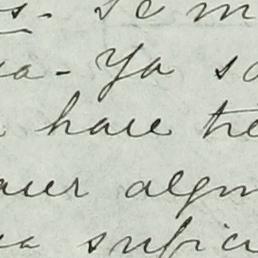 s. se m
a - Ya s
hace tre
acer algu
sufici